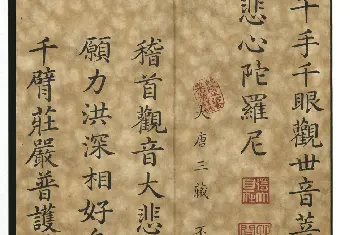 千手千眼觀世音菩
悲心陀羅尼
大唐三藏
稽首觀音大悲
願力洪深相好
千臂莊嚴普護